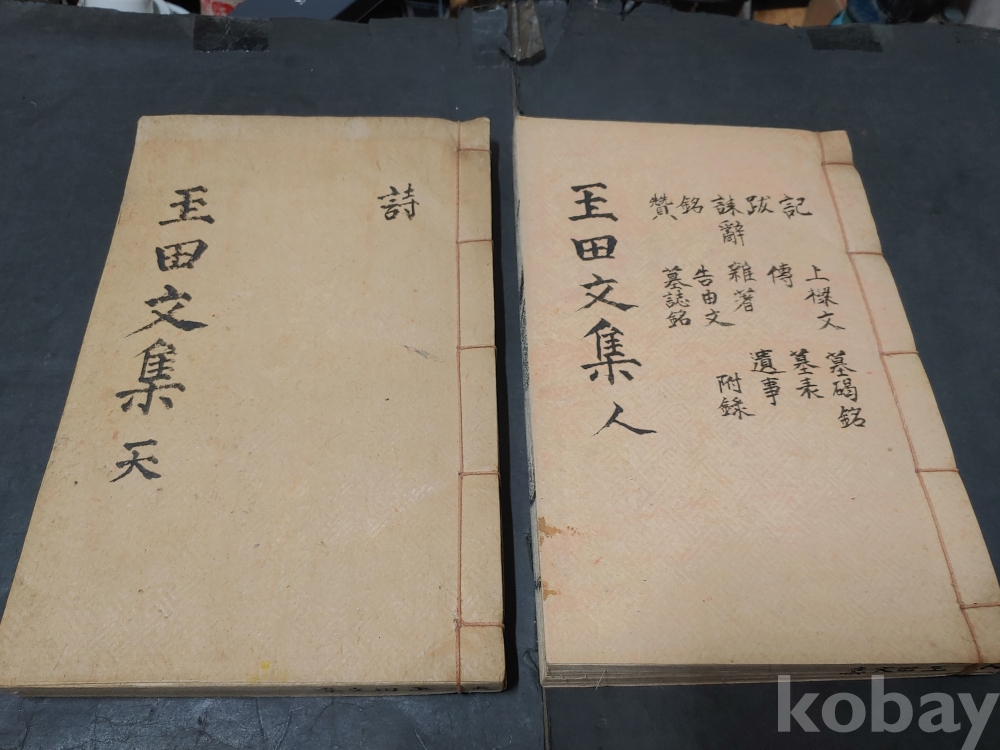 詩
玉田文集 天
記
跋
誄辭
銘
贊
上樑文
傳
雜著
告由文
墓誌銘
墓碣銘
墓表
遺事
附錄
玉田文集 人
kobay